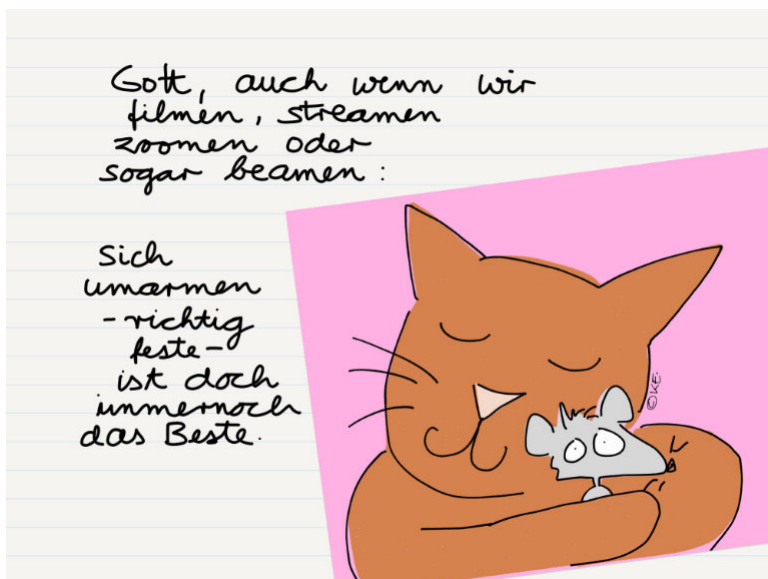 Gott, auch wenn wir
filmen, streamen
zoomen oder
sogar beamen:
sich
umarmen
-richtig
feste-
ist doch
immernoch
das Beste.
©KE.